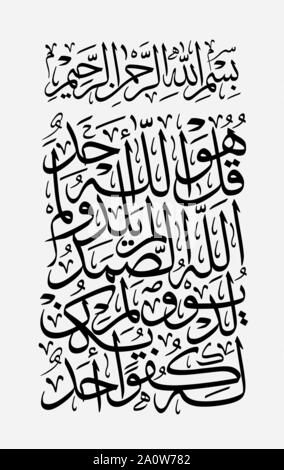 بِسْمِ اللَّهِ الرَّحْمَنِ الرَّحِيمِ
قُلْ هُوَ اللَّهُ أَحَدٌ
اللَّهُ الصَّمَدُ لَمْ يَلِدْ وَلَمْ
يُولَدْ وَلَمْ يَكُنْ
لَهُ كُفُوًا أَحَدٌ
alamy
Image ID: 2A0W782
www.alamy.com